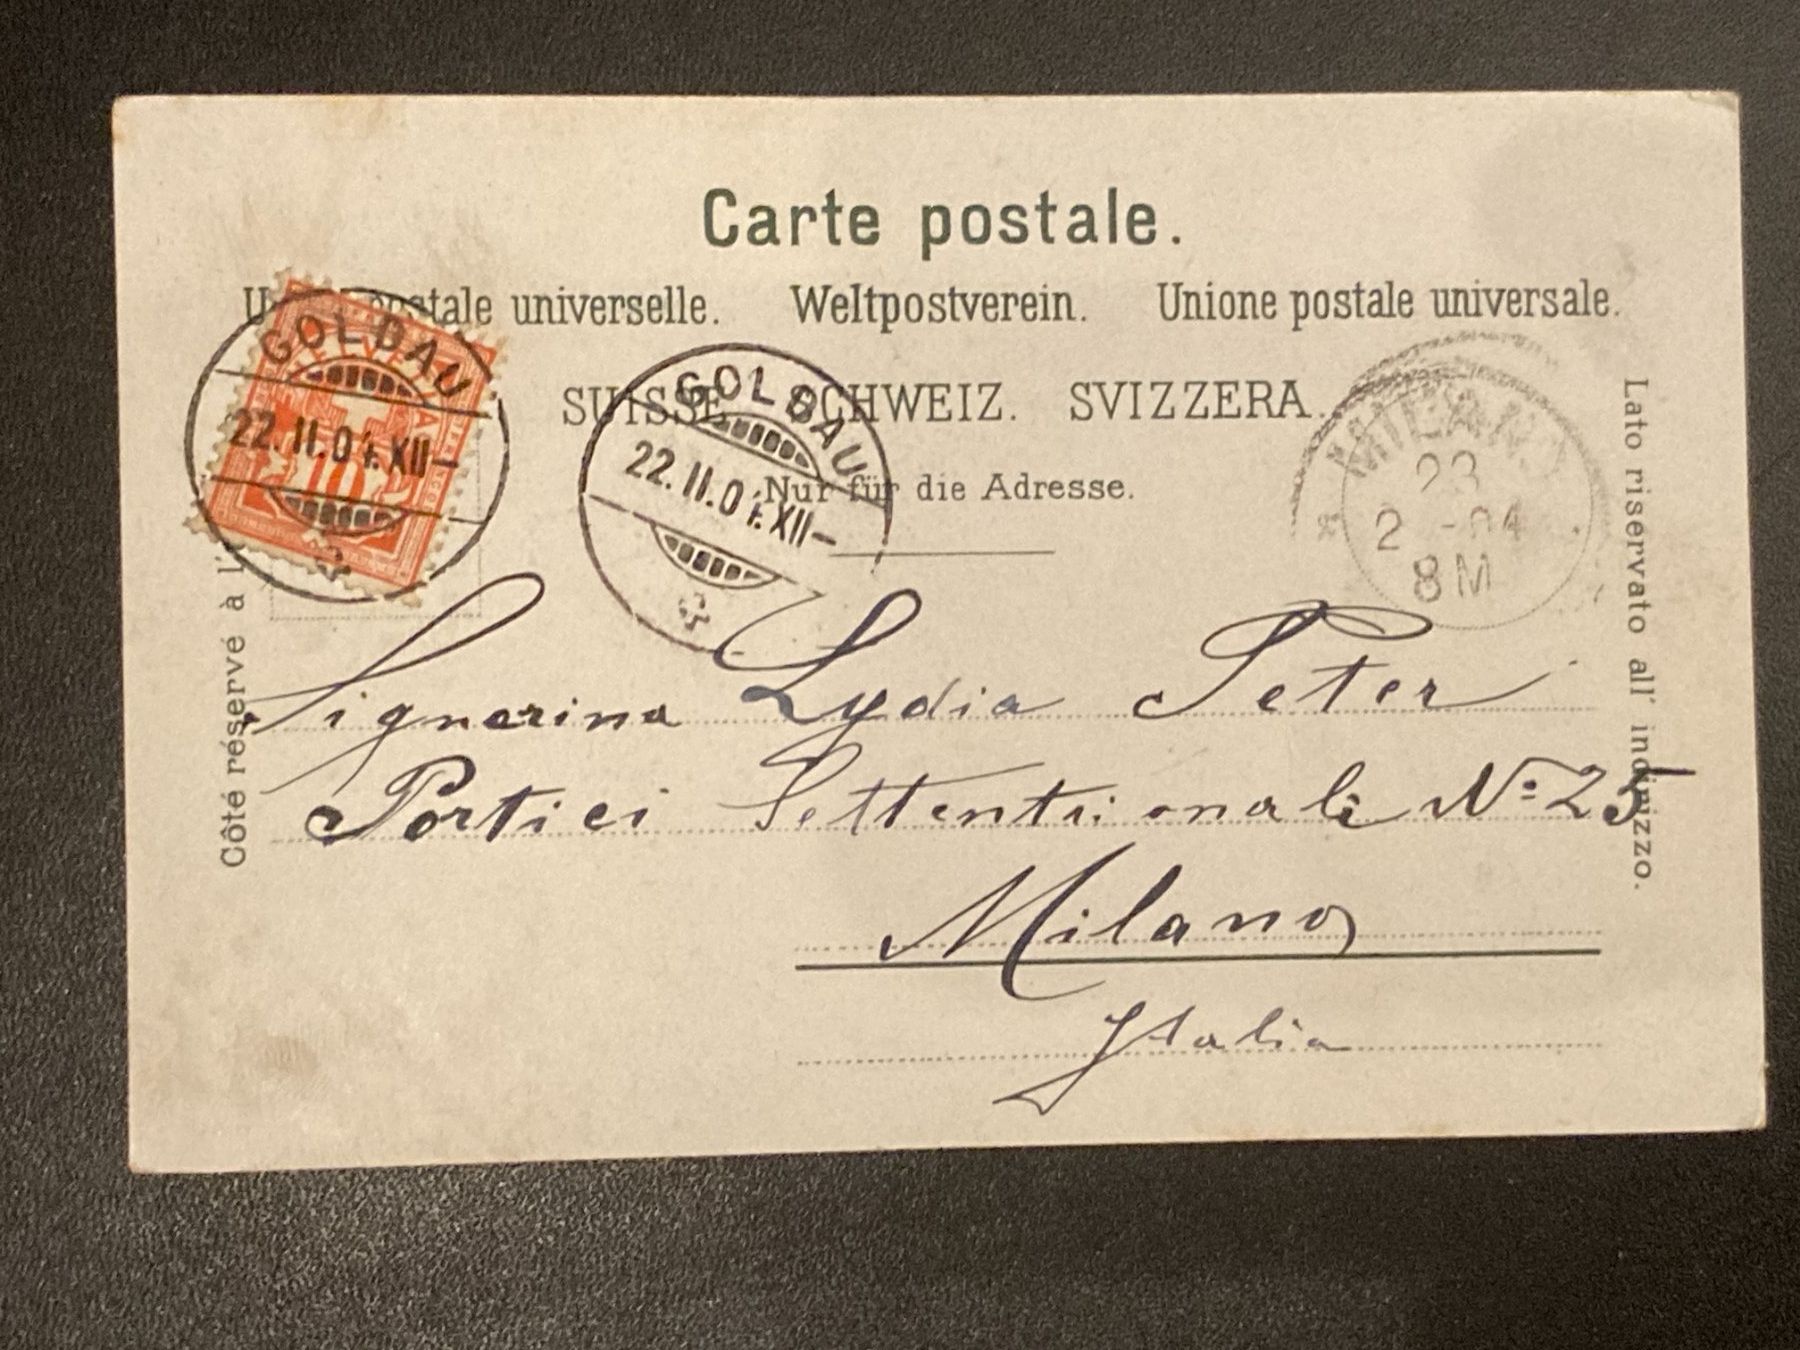 Carte postale.
postale universelle. Weltpostverein. Unione postale universale.
SUISSE. SCHWEIZ. SVIZZERA.
Nur für die Adresse.
GOLDAU
22.II.04. XII–
10
GOLDAU
22.II.04. XII–
MILANO
23
2 -04
8M
Côté réservé à l'
Lato riservato all' indirizzo.
Signorina Lydia Peter
Portici Settentrionali No 25
Milano
Italia